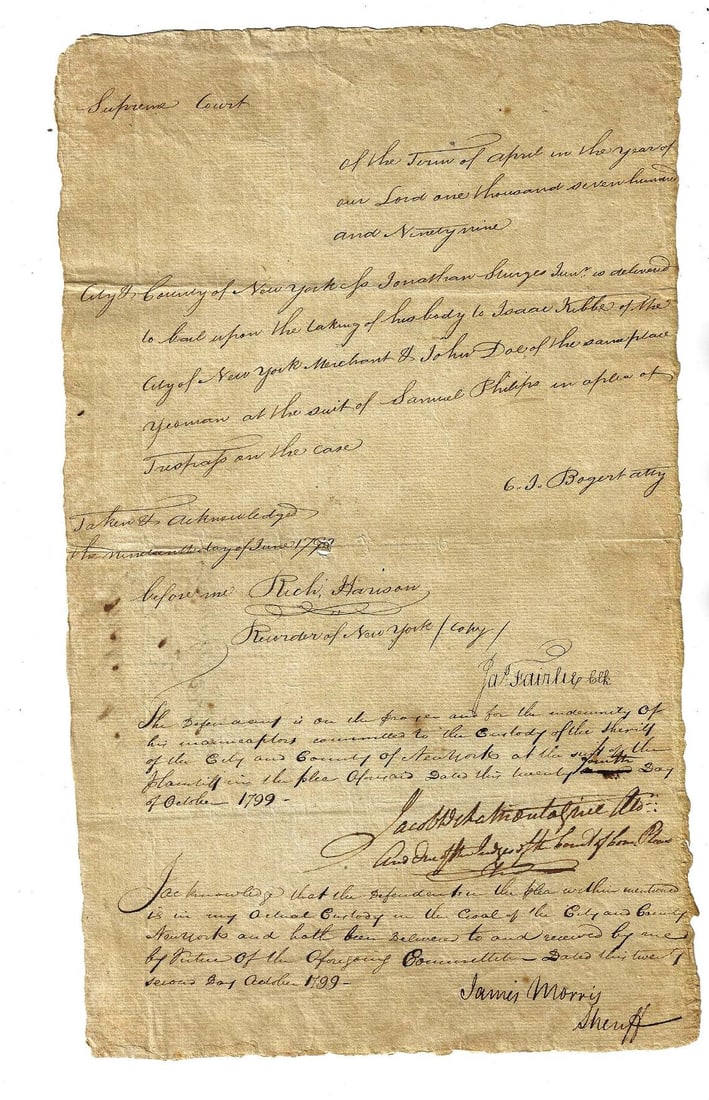 Supreme Court
of the Term of April in the year of
our Lord one thousand seven hundred
and Ninety nine
City & County of New York Ss Jonathan Sturges Junr. is delivered
to bail upon the taking of his body to Isaac Kibbe of the
City of New York Merchant & John Doe of the same place
Yeoman at the suit of Samuel Philips in a plea of
Trespass on the case
C. J. Bogert atty
Taken & acknowledged
the nineteenth day of June 179
before me Richd. Harison
Recorder of New York / Copy /
Jas. Fairlie Clk
The Defendant is on the prayer and for the indemnity Of
his manucaptors committed to the Custody of the Sheriff
of the City and County of New York at the suit of the
Plaintiff in the plea Aforesaid Dated this twenty Day
of October 1799 -
Jacob De La Montagnie
And One of the Judges of the Court of Com. Pleas
I acknowledge that the Defendent in the plea within mentioned
is in my Actual Custody in the Goal of the City and County
New York and hath been Delivered to and received by me
by Virtue Of the Aforegoing Committetur - Dated this twenty
second Day October 1799 -
James Morris
Sheriff